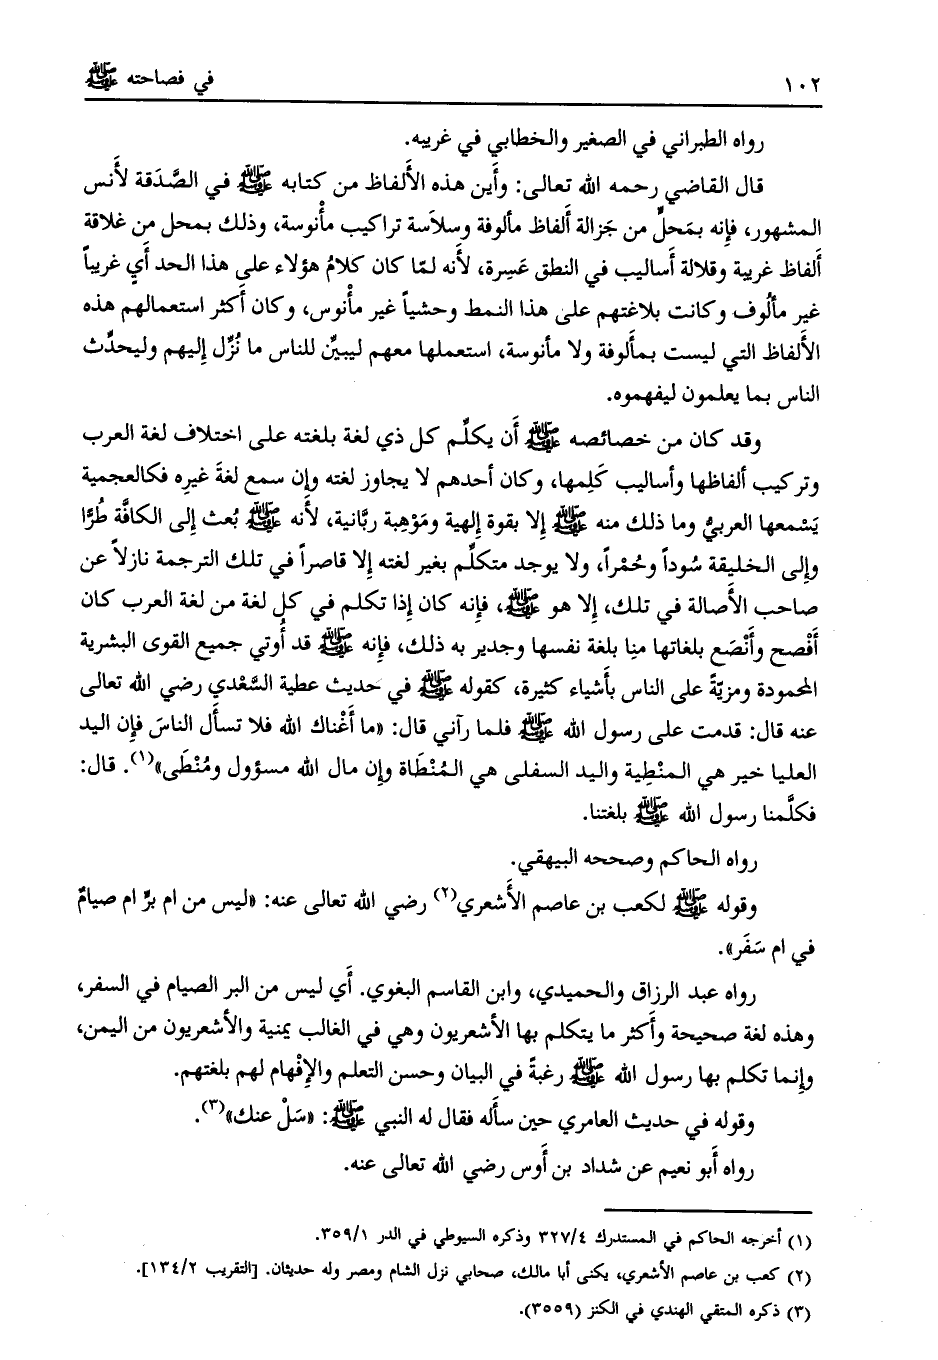 ١٠٢ في فصاحته ﷺ
رواه الطبراني في الصغير والخطابي في غريبه.
قال القاضي رحمه الله تعالى: وأَين هذه الأَلفاظ من كتابه ﷺ في الصَّدَقة لأَنس
المشهور، فإِنه بمَحلٍّ من جَزالة أَلفاظ مألوفة وسلاَسة تراكيب مأْنوسة، وذلك بمحل من غلاقة
أَلفاظ غريبة وقلالة أَساليب في النطق عَسِرة، لأَنه لمّا كان كلامُ هؤلاء على هذا الحد أَي غريباً
غير مأْلُوف وكانت بلاغتهم على هذا النمط وحشياً غير مأْنوس، وكان أَكثر استعمالهم هذه
الأَلفاظ التي ليست بمأَلوفة ولا مأنوسة، استعملها معهم ليبيِّن للناس ما نُزِّل إِليهم وليحدِّث
الناس بما يعلمون ليفهموه.
وقد كان من خصائصه ﷺ أَن يكلِّم كل ذي لغة بلغته على اختلاف لغة العرب
وتركيب ألفاظها وأساليب كَلِمها، وكان أحدهم لا يجاوز لغته وإن سمع لغةَ غيرِه فكالعجمية
يَسْمعها العربيُّ وما ذلك منه ﷺ إِلا بقوة إلهية ومَوْهِبة ربَّانية، لأَنه ﷺ بُعث إِلى الكافَّة طُرًّا
وإِلى الخليقة سُوداً وحُمْراً، ولا يوجد متكلِّم بغير لغته إِلا قاصراً في تلك الترجمة نازلاً عن
صاحب الأَصالة في تلك، إِلا هو ﷺ، فإِنه كان إِذا تكلم في كل لغة من لغة العرب كان
أَفْصح وأَنْصَع بلغاتها منِا بلغة نفسها وجدير به ذلك، فإِنه ﷺ قد أُوتي جميع القوى البشرية
المحمودة ومزيّةً على الناس بأَشياء كثيرة، كقوله ﷺ في حديث عطية السَّعْدي رضي الله تعالى
عنه قال: قدمت على رسول الله ﷺ فلما رآني قال: «ما أَغْناك الله فلا تسأَل الناسَ فإِن اليد
العليا خير هي المنْطِية واليد السفلى هي المُنْطَاة وإن مال الله مسؤول ومُنْطَى»(١). قال:
فكلَّمنا رسول الله ﷺ بلغتنا.
رواه الحاكم وصححه البيهقي.
وقوله ﷺ لكعب بن عاصم الأَشعري(٢) رضي الله تعالى عنه: «ليس من ام برٍّ ام صيامٌ
في ام سَفَر».
رواه عبد الرزاق والحميدي، وابن القاسم البغوي. أَي ليس من البر الصيام في السفر،
وهذه لغة صحيحة وأَكثر ما يتكلم بها الأشعريون وهي في الغالب يمنية والأشعريون من اليمن،
وإِنما تكلم بها رسول الله ﷺ رغبةً في البيان وحسن التعلم والإِفْهام لهم بلغتهم.
وقوله في حديث العامري حين سأَله فقال له النبي ﷺ: «سَلْ عنك»(٣).
رواه أَبو نعيم عن شداد بن أَوس رضي الله تعالى عنه.
(١) أخرجه الحاكم في المستدرك ٣٢٧/٤ وذكره السيوطي في الدر ٣٥٩/١.
(٢) كعب بن عاصم الأشعري، يكنى أبا مالك، صحابي نزل الشام ومصر وله حديثان. [التقريب ١٣٤/٢].
(٣) ذكره المتقي الهندي في الكنز (٣٥٥٩).